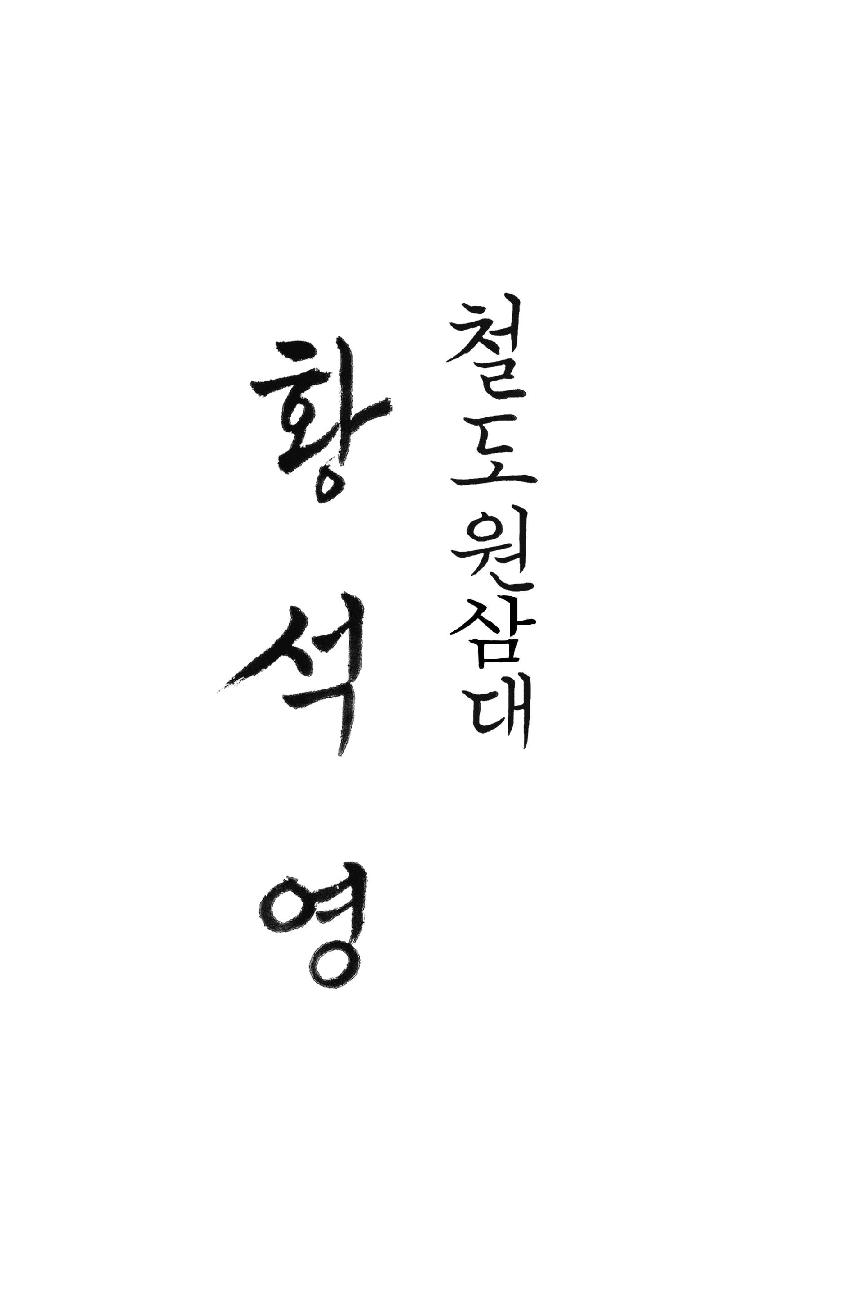 철도원삼대
황석영